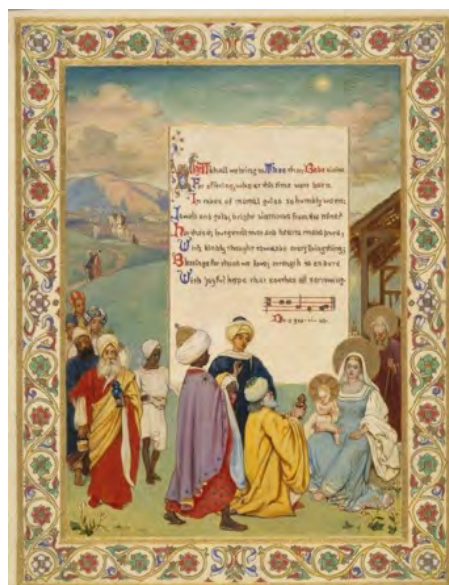 What shall we bring to Thee thou Babe divine
For offering, who at this time were born
In robes of mortal guise so humbly
Jewels and gold, bright vestments from the
burgeoned and hearts made pure,
With kindly thought towards every living thing;
Blessings for those we love; strength to endure
With joyful hope that soothes all sorrowing.
De o gra ti as